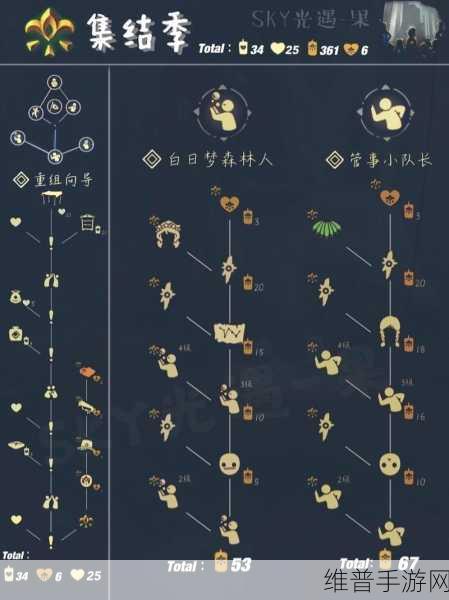 集结季
SKY光遇-果
Total: 34 25 361 6
重组向导
白日梦森林人
管事小队长
3
20
15
4级
3级
10
5
2级
5
20
18
4级
3级
16
10
2级
SKY光遇-果
Total:
34 6 25
Total: 53
Total: 67
维普手游网